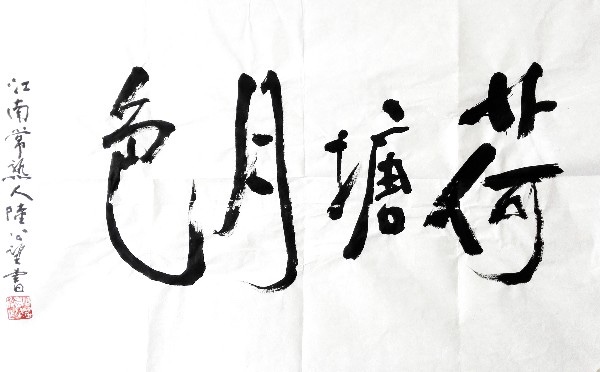 荷塘月色
江南常熟人陸公望書